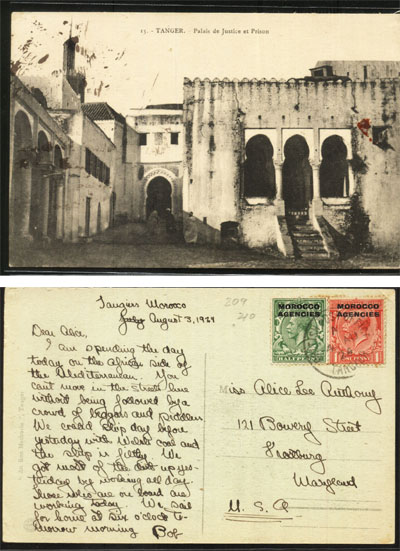 15. - TANGER. Palais de Justice et Prison
Tangiers Morocco
July August 3, 1929
Dear Alice,
I am spending the day
today on the African side of
the Mediterranean. You
can't move in the streets here
without being followed by a
crowd of beggars and peddlers
We could ship day before
yesterday with Welsh coal and
the ship is filthy. We
got most of the dirt up yes-
terday by working all day.
Those who are on board are
working today. We sail
for home at six o'clock to-
morrow morning Bob
209
210
MOROCCO
AGENCIES
HALFPENNY
MOROCCO
AGENCIES
1
TANG
Miss Alice Lee Anthony
121 Bowery Street
Frostburg
Maryland
U.S.A